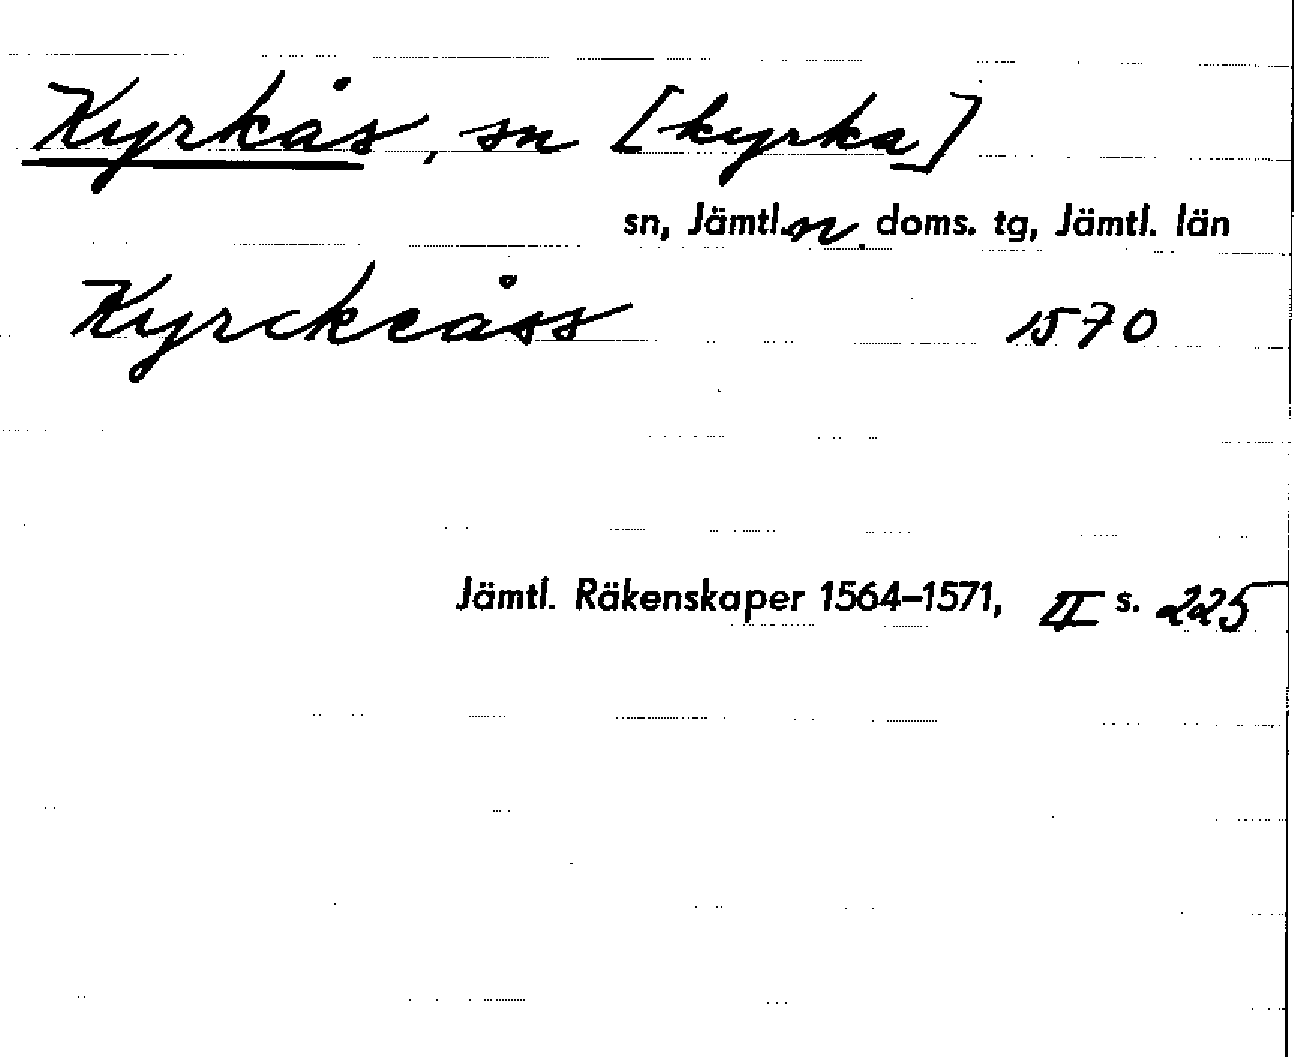 Kyrkås, sn [kyrka]
sn, Jämtl. n. doms. tg, Jämtl. län
Kyrckeåss 1570
Jämtl. Räkenskaper 1564–1571, II s. 225